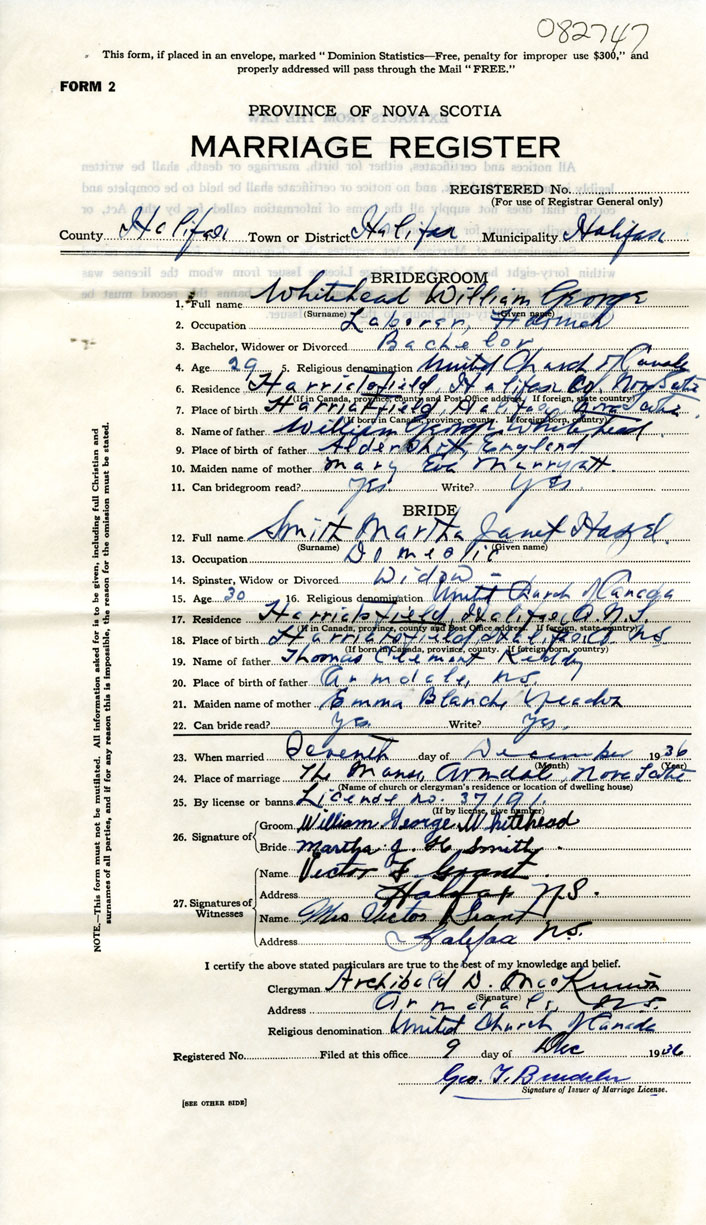 082747
This form, if placed in an envelope, marked "Dominion Statistics—Free, penalty for improper use $300," and
properly addressed will pass through the Mail "FREE."
FORM 2
PROVINCE OF NOVA SCOTIA
MARRIAGE REGISTER
REGISTERED No.
(For use of Registrar General only)
County Halifax Town or District Halifax Municipality Halifax
BRIDEGROOM
1. Full name Whitehead William George
(Surname) (Given name)
2. Occupation Laborer,
3. Bachelor, Widower or Divorced Bachelor
4. Age 29 5. Religious denomination United Church of Canada
6. Residence Harrietsfield, Halifax Co Nova Scotia
(If in Canada, province, county and Post Office address. If foreign, state country)
7. Place of birth Harrietsfield, Halifax, Nova Scotia
(If born in Canada, province, county. If foreign born, country)
8. Name of father William George Whitehead
9. Place of birth of father Aldershot, England
10. Maiden name of mother Mary Eva Marryatt
11. Can bridegroom read? Yes Write? Yes
BRIDE
12. Full name Smith Martha Janet Hazel
(Surname) (Given name)
13. Occupation Domestic
14. Spinster, Widow or Divorced Widow -
15. Age 30 16. Religious denomination United Church of Canada
17. Residence Harrietsfield, Halifax Co. N.S.
(If in Canada, province, county and Post Office address. If foreign, state country)
18. Place of birth Harrietsfield Halifax Co N.S.
(If born in Canada, province, county. If foreign born, country)
19. Name of father Thomas Clement Reddy
20. Place of birth of father Armdale, N.S.
21. Maiden name of mother Emma Blanche
22. Can bride read? Yes Write? Yes,
23. When married Seventh day of December 1936
(Month) (Year)
24. Place of marriage The Manse, Armdale, Nova Scotia
(Name of church or clergyman's residence or location of dwelling house)
25. By license or banns License no. 37191.
(If by license, give number)
26. Signature of
Groom William George Whitehead
Bride Martha J. H. Smith.
27. Signatures of Witnesses
Name Victor F Grant
Address Halifax N.S.
Name Mrs Victor Grant
Address Halifax N.S.
I certify the above stated particulars are true to the best of my knowledge and belief.
Clergyman Archibald D. MacKinnon
(Signature)
Address Armdale, N.S.
Religious denomination United Church of Canada
Registered No. Filed at this office 9 day of Dec 1936
Geo. T.
Signature of Issuer of Marriage License.
[SEE OTHER SIDE]
NOTE.—This form must not be mutilated. All information asked for is to be given, including full Christian and
surnames of all parties, and if for any reason this is impossible, the reason for the omission must be stated.